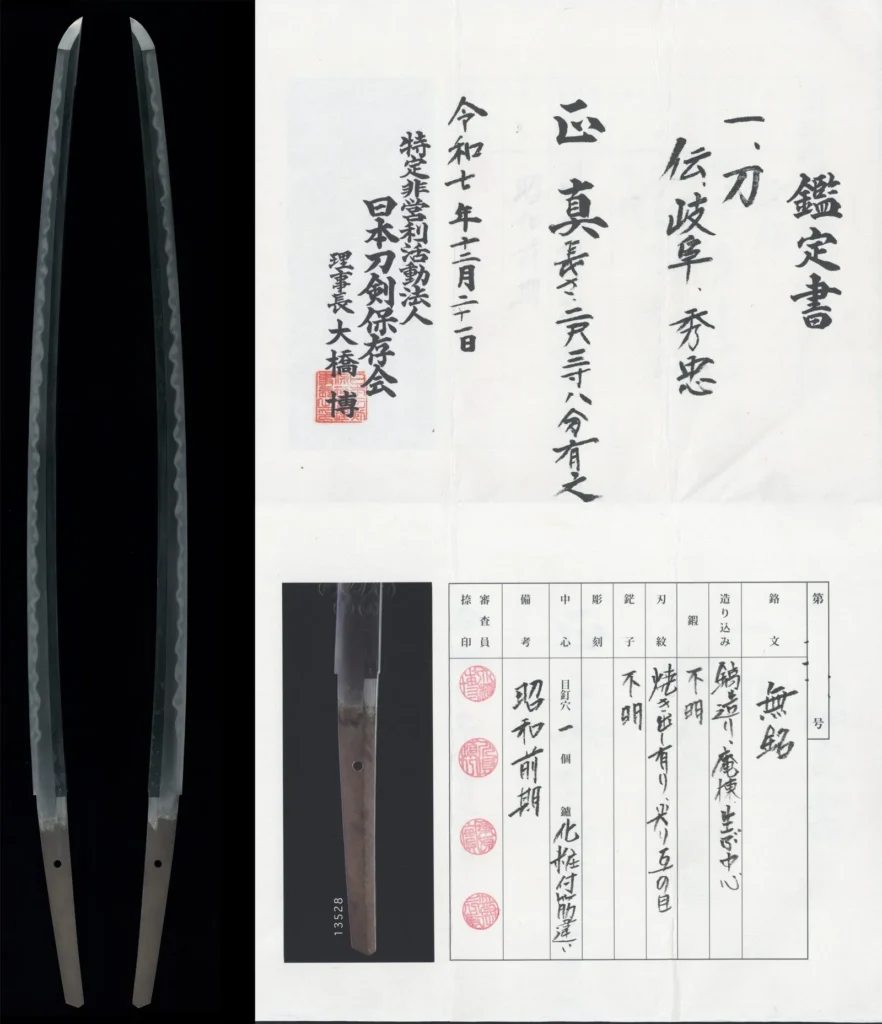 鑑定書
一、刀
伝、岐阜、秀忠
正真
長さ、二尺三寸八分有之
令和七年十二月二十一日
特定非営利活動法人
日本刀剣保存会
理事長 大橋 博
第 号
銘文 無銘
造り込み 鎬造り、庵棟、生ぶ中心
鍜 不明
刃紋 焼き出し有り、尖り互の目
鋩子 不明
彫刻
中心 目釘穴 一 個 鑢 化粧付筋違い
備考 昭和前期
審査員
捺印
13528